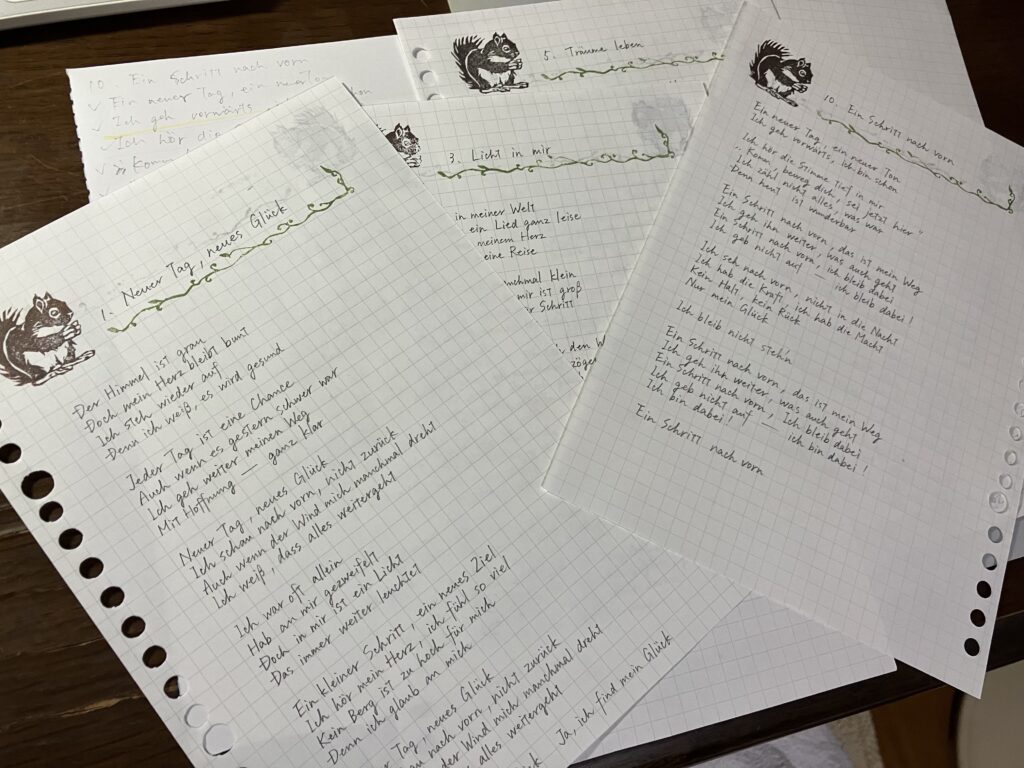 10. Ein Schritt nach vorn
✓ Ein neuer Tag, ein neuer Ton
✓ Ich geh vorwärts
schon
✓ Ich hör die
✓ „ Komm,
5. Träume leben
3. Licht in mir
in meiner Welt
ein Lied ganz leise
meinem Herz
eine Reise
klein
mir ist groß
Schritt
den
1. Neuer Tag, neues Glück
Der Himmel ist grau
Doch mein Herz bleibt bunt
Ich steh wieder auf
Denn ich weiß, es wird gesund
Jeder Tag ist eine Chance
Auch wenn es gestern schwer war
Ich geh weiter meinen Weg
Mit Hoffnung — ganz klar
Neuer Tag, neues Glück
Ich schau nach vorn, nicht zurück
Auch wenn der Wind mich manchmal dreht
Ich weiß, dass alles weitergeht
Ich war oft allein
Hab an mir gezweifelt
Doch in mir ist ein Licht
Das immer weiter leuchtet
Ein kleiner Schritt, ein neues Ziel
Ich hör mein Herz, ich fühl so viel
Kein Berg ist zu hoch für mich
Denn ich glaub an mich
Tag, neues Glück
nach vorn, nicht zurück
der Wind mich manchmal dreht
alles weitergeht
Ja, ich find mein Glück
10. Ein Schritt nach vorn
Ein neuer Tag, ein neuer Ton
Ich geh vorwärts, ich bin schon
Ich hör die Stimme tief in mir
„ Komm, beweg dich, sei jetzt hier "
Ich zähl nicht alles, was war
Denn heut ist wunderbar
Ein Schritt nach vorn, das ist mein Weg
Ich geh ihn weiter, was auch geht
Ein Schritt nach vorn, ich bleib dabei
Ich geb nicht auf — ich bleib dabei !
Ich seh nach vorn, nicht in die Nacht
Ich hab die Kraft, ich hab die Macht
Kein Halt, kein Rück
Nur mein Glück
Ich bleib nicht stehn
Ein Schritt nach vorn, das ist mein Weg
Ich geh ihn weiter, was auch geht
Ein Schritt nach vorn, Ich bleib dabei
Ich geb nicht auf — ich bin dabei !
Ich bin dabei !
Ein Schritt nach vorn